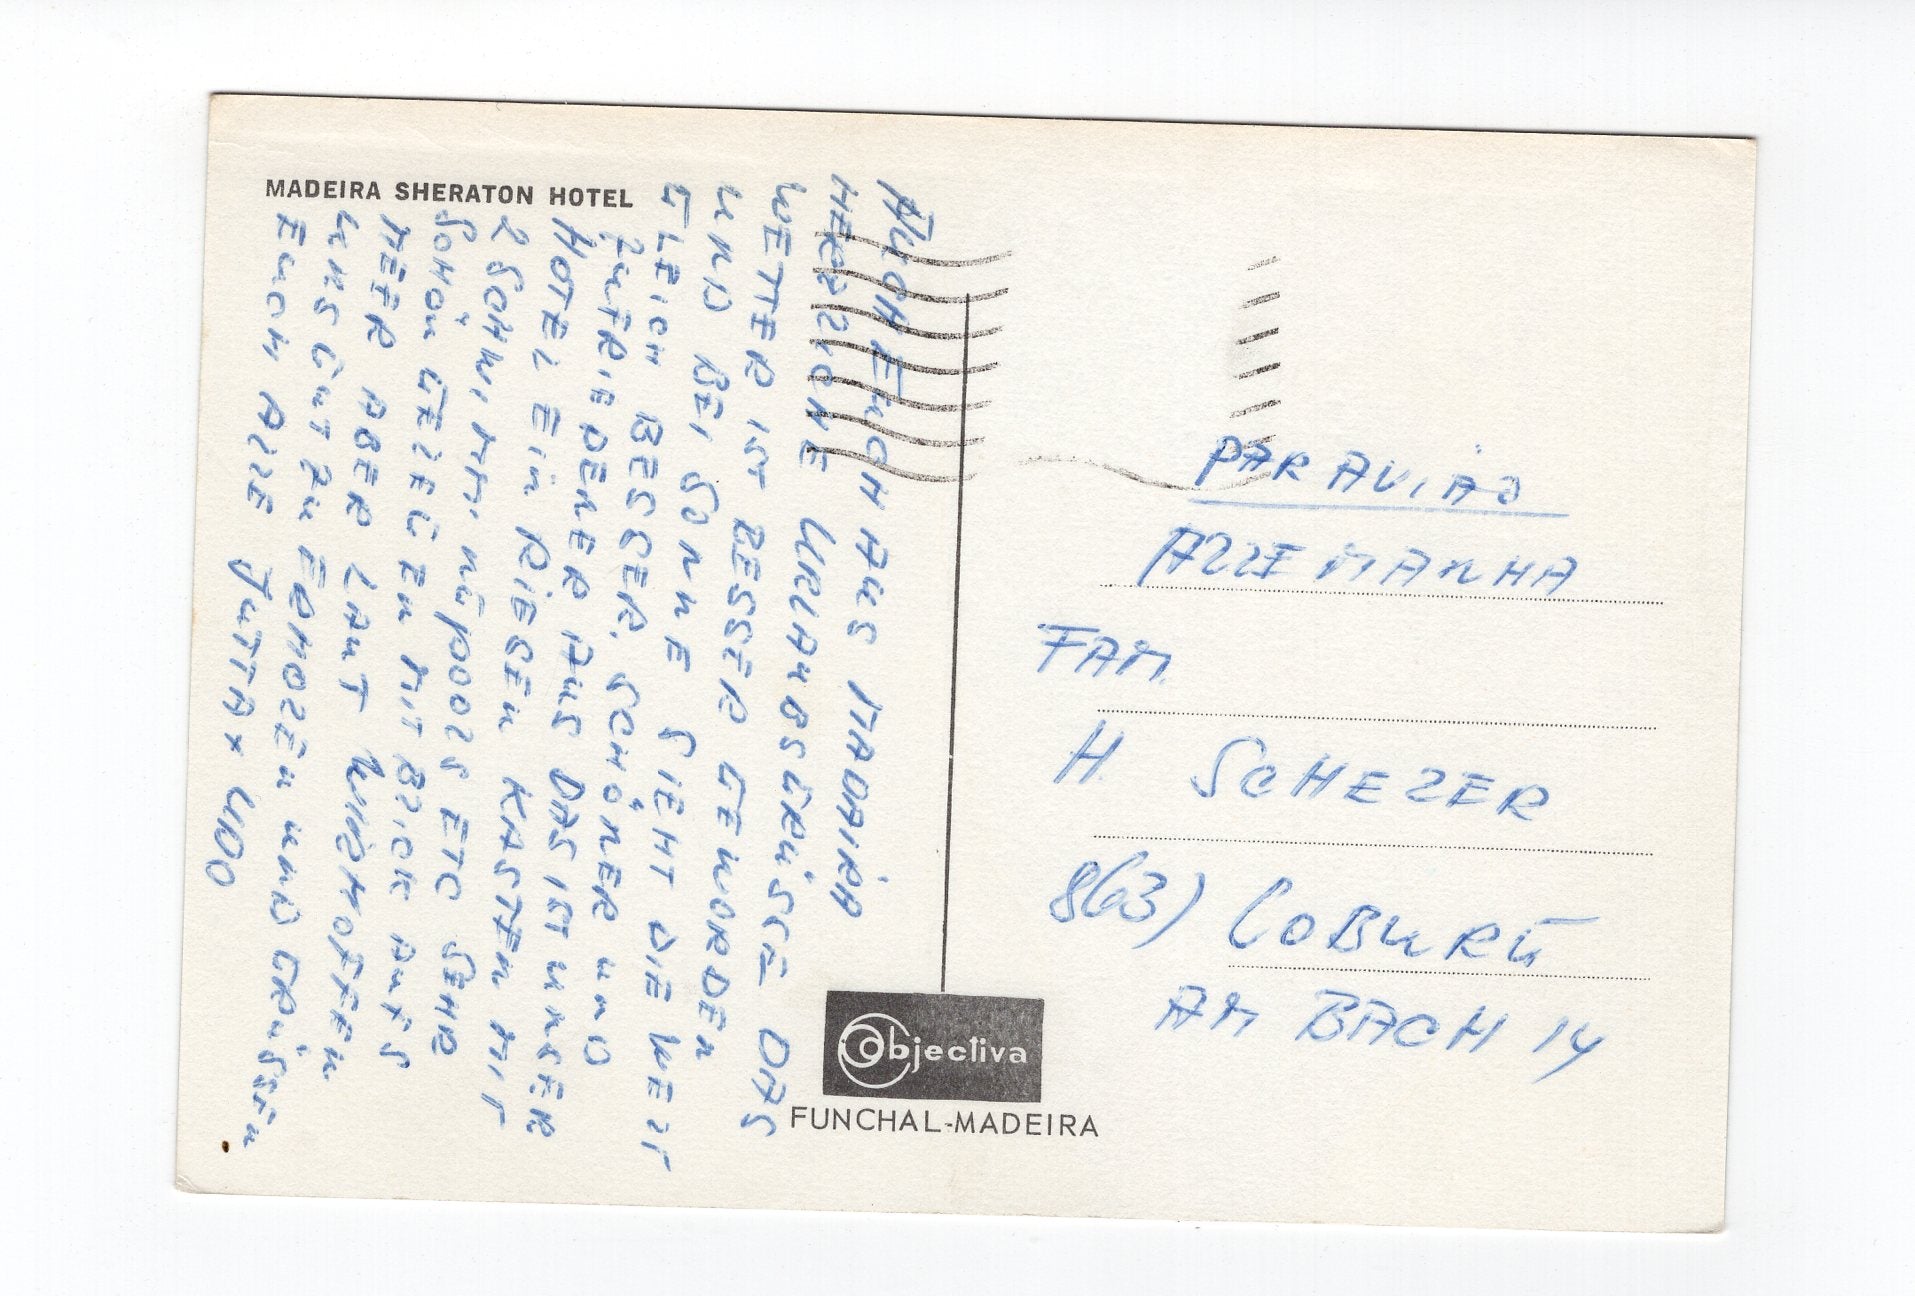 MADEIRA SHERATON HOTEL
AUCH EUCH AUS MADAIRA
HERZLICHE URLAUBSGRÜSSE DAS
WETTER IST BESSER GEWORDEN
UND BEI SONNE SIEHT DIE WELT
GLEICH BESSER, SCHÖNER UND
ZUFRIEDENER AUS DAS IST UNSER
HOTEL EIN RIESEN KASTEN MIT
2 SCHWIMMINGPOOLS ETC SEHR
SCHÖN GELEGEN MIT BLICK AUFS
MEER ABER LAUT WIR HOFFEN
UNS GUT ZU ERHOLEN UND GRÜSSEN
EUCH ALLE JUTTA + UDO
PAR AVIAO
ALLEMANHA
FAM
H. SCHELER
8(63) COBURG
AM BACH 14
Objectiva
FUNCHAL-MADEIRA